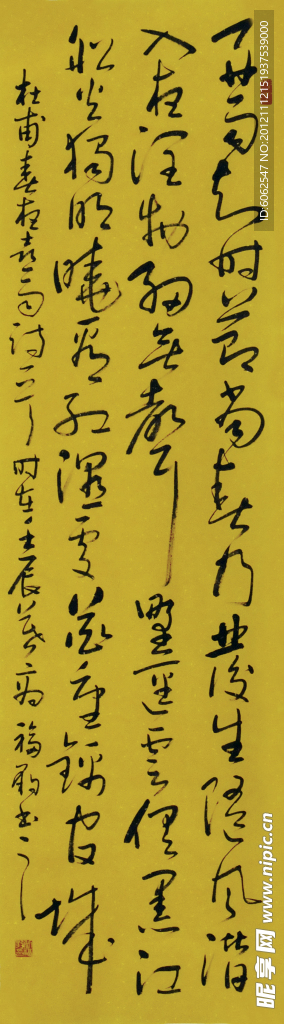 好雨知时节当春乃发生随风潜
入夜润物细无声野径云俱黑江
船火独明晓看红湿处花重锦官城
杜甫春夜喜雨诗一首 时在壬辰
福 书
ID:6062547 NO:20121112151937539000
昵享网 www.nipic.cn